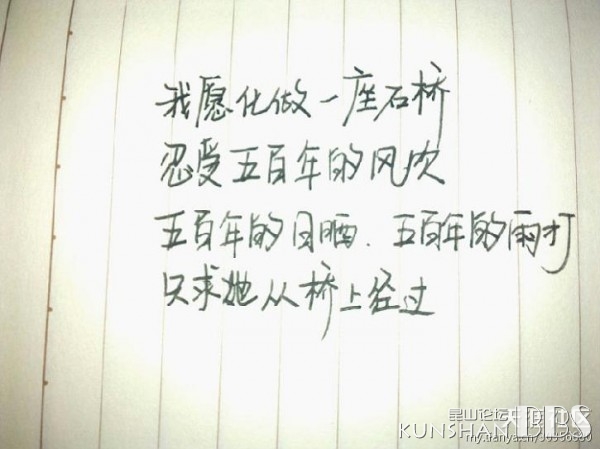 我愿化做一座石桥
忍受五百年的风吹
五百年的日晒、五百年的雨打
只求她从桥上经过
昆山论坛
KUNSHAN BBS